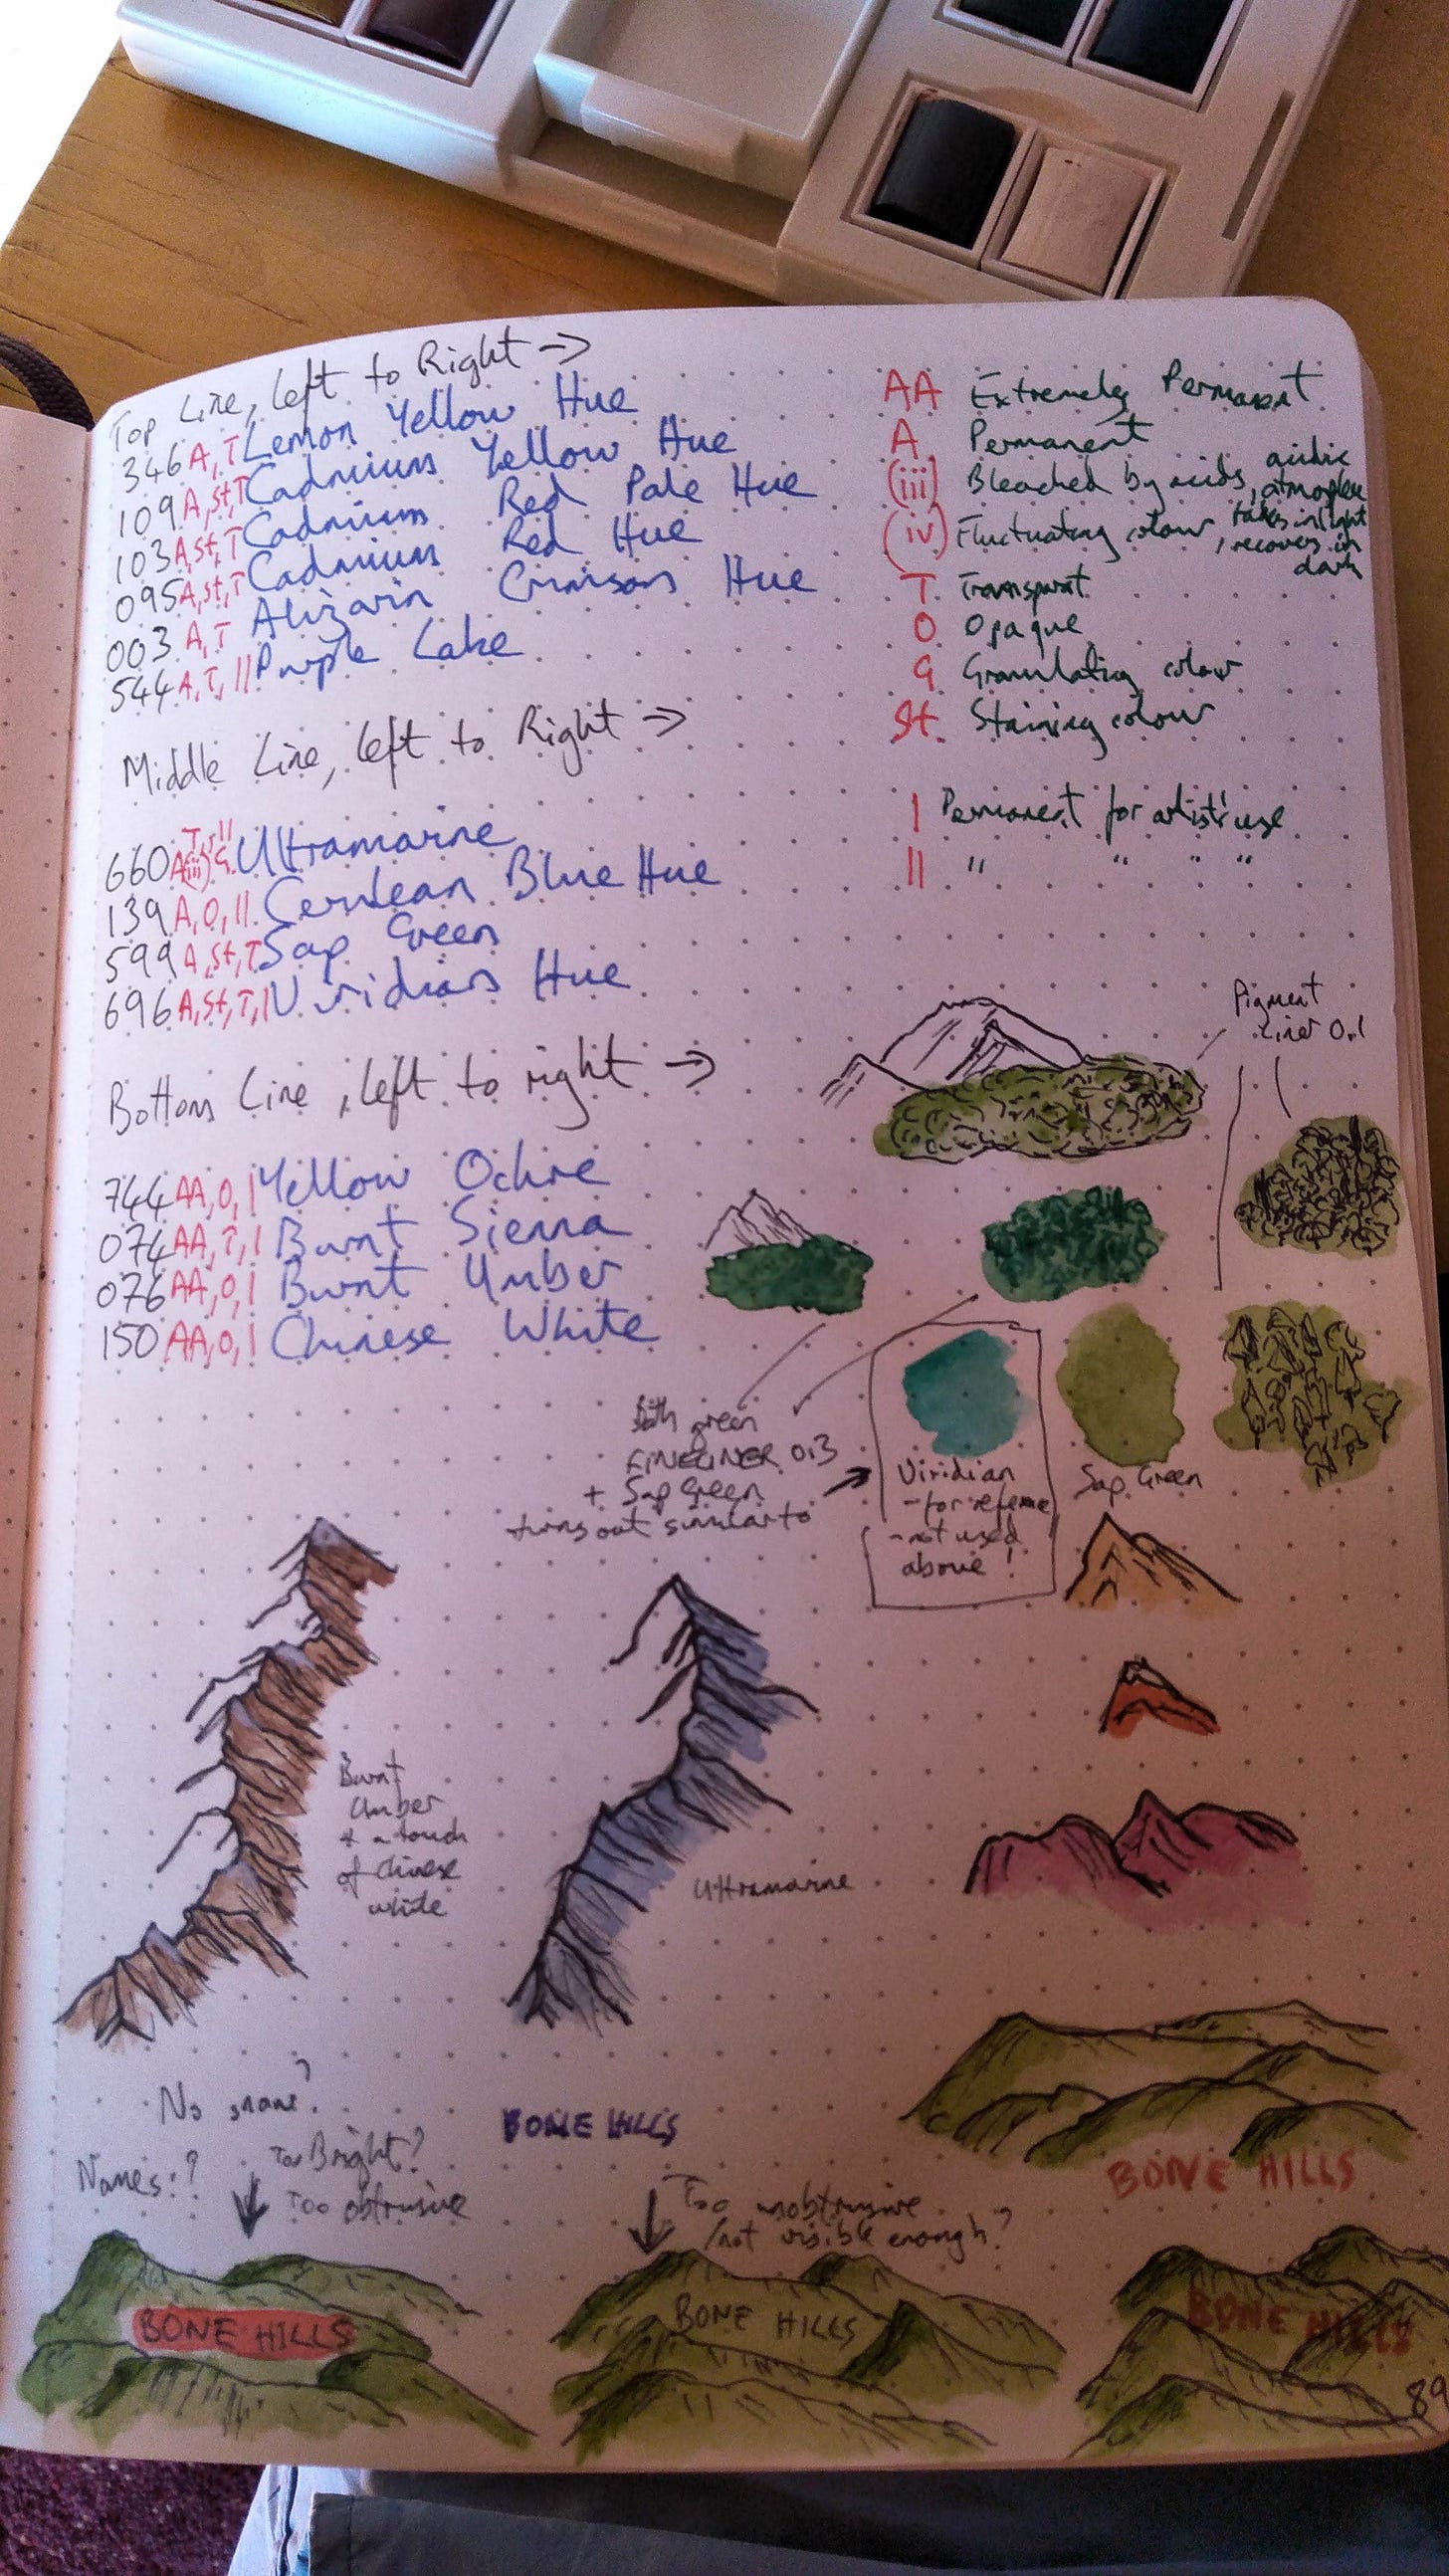 Top Line, Left to Right →
346 A, T Lemon Yellow Hue
109 A, St, T Cadmium Yellow Hue
103 A, St, T Cadmium Red Pale Hue
095 A, St, T Cadmium Red Hue
003 A, T Alizarin Crimson Hue
544 A, T, || Purple Lake
Middle Line, Left to Right →
660 A (iii) G T, || Ultramarine
139 A, O, || Cerulean Blue Hue
599 A, St, T Sap Green
696 A, St, T, | Viridian Hue
Bottom Line, Left to right →
744 AA, O, | Yellow Ochre
074 AA, T, | Burnt Sienna
076 AA, O, | Burnt Umber
150 AA, O, | Chinese White
AA Extremely Permanent
A Permanent
(iii) Bleached by acids, acidic
atmosphere
(iv) Fluctuating colour, fades in light
, recovers in
dark
T Transparent
O Opaque
G Granulating colour
St Staining colour
| Permanent for artists' use
|| " " " "
Pigment
Liner 0.1
Both green
FINELINER 0.3
+ Sap Green
turns out similar to
Viridian
- for reference
- not used
above!
Sap Green
Burnt
Umber
+ a touch
of Chinese
white
Ultramarine
No name?
Names:?
Too Bright?
Too obtrusive
BONE HILLS
Too unobtrusive
/not visible enough?
BONE HILLS
BONE HILLS
BONE HILLS
BONE HILLS
89